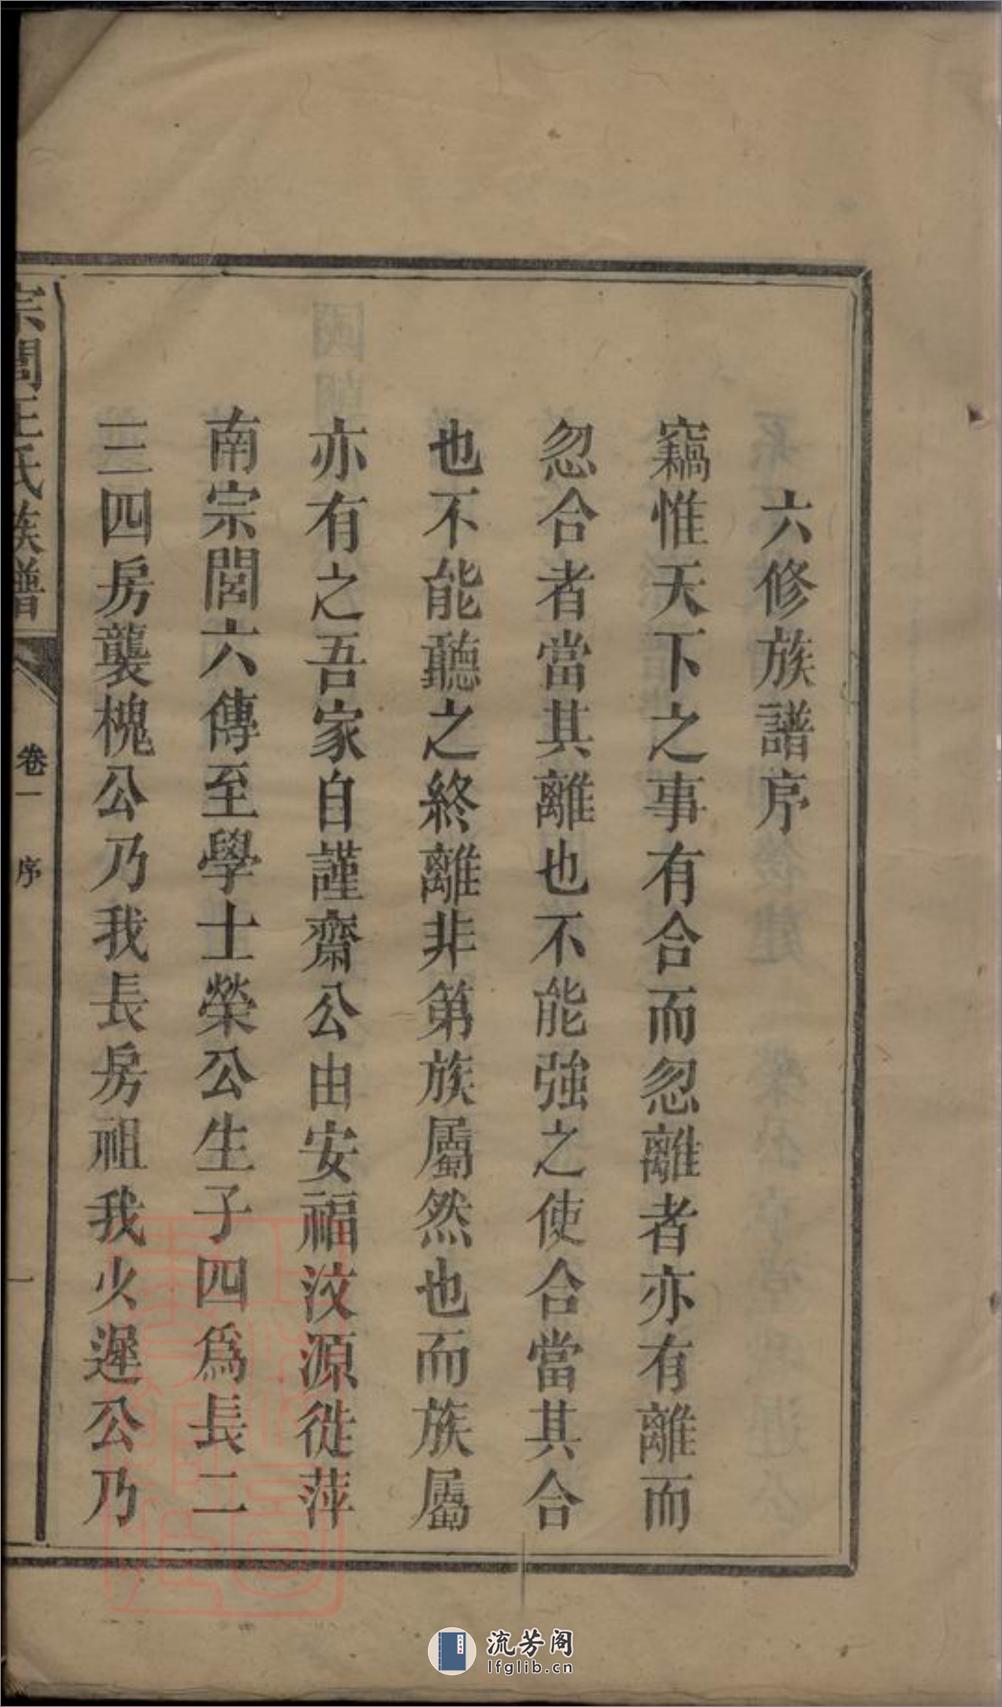 六修族譜序
竊惟天下之事有合而忽離者亦有離而
忽合者當其離也不能強之使合當其合
也不能聽之終離非第族屬然也而族屬
亦有之吾家自謹齋公由安福汶源徙萍
南宗閭六傳至學士榮公生子四爲長二
三四房襲槐公乃我長房祖我火遲公乃
宗閭王氏族譜
卷一
序
一
流芳阁
lfglib.cn